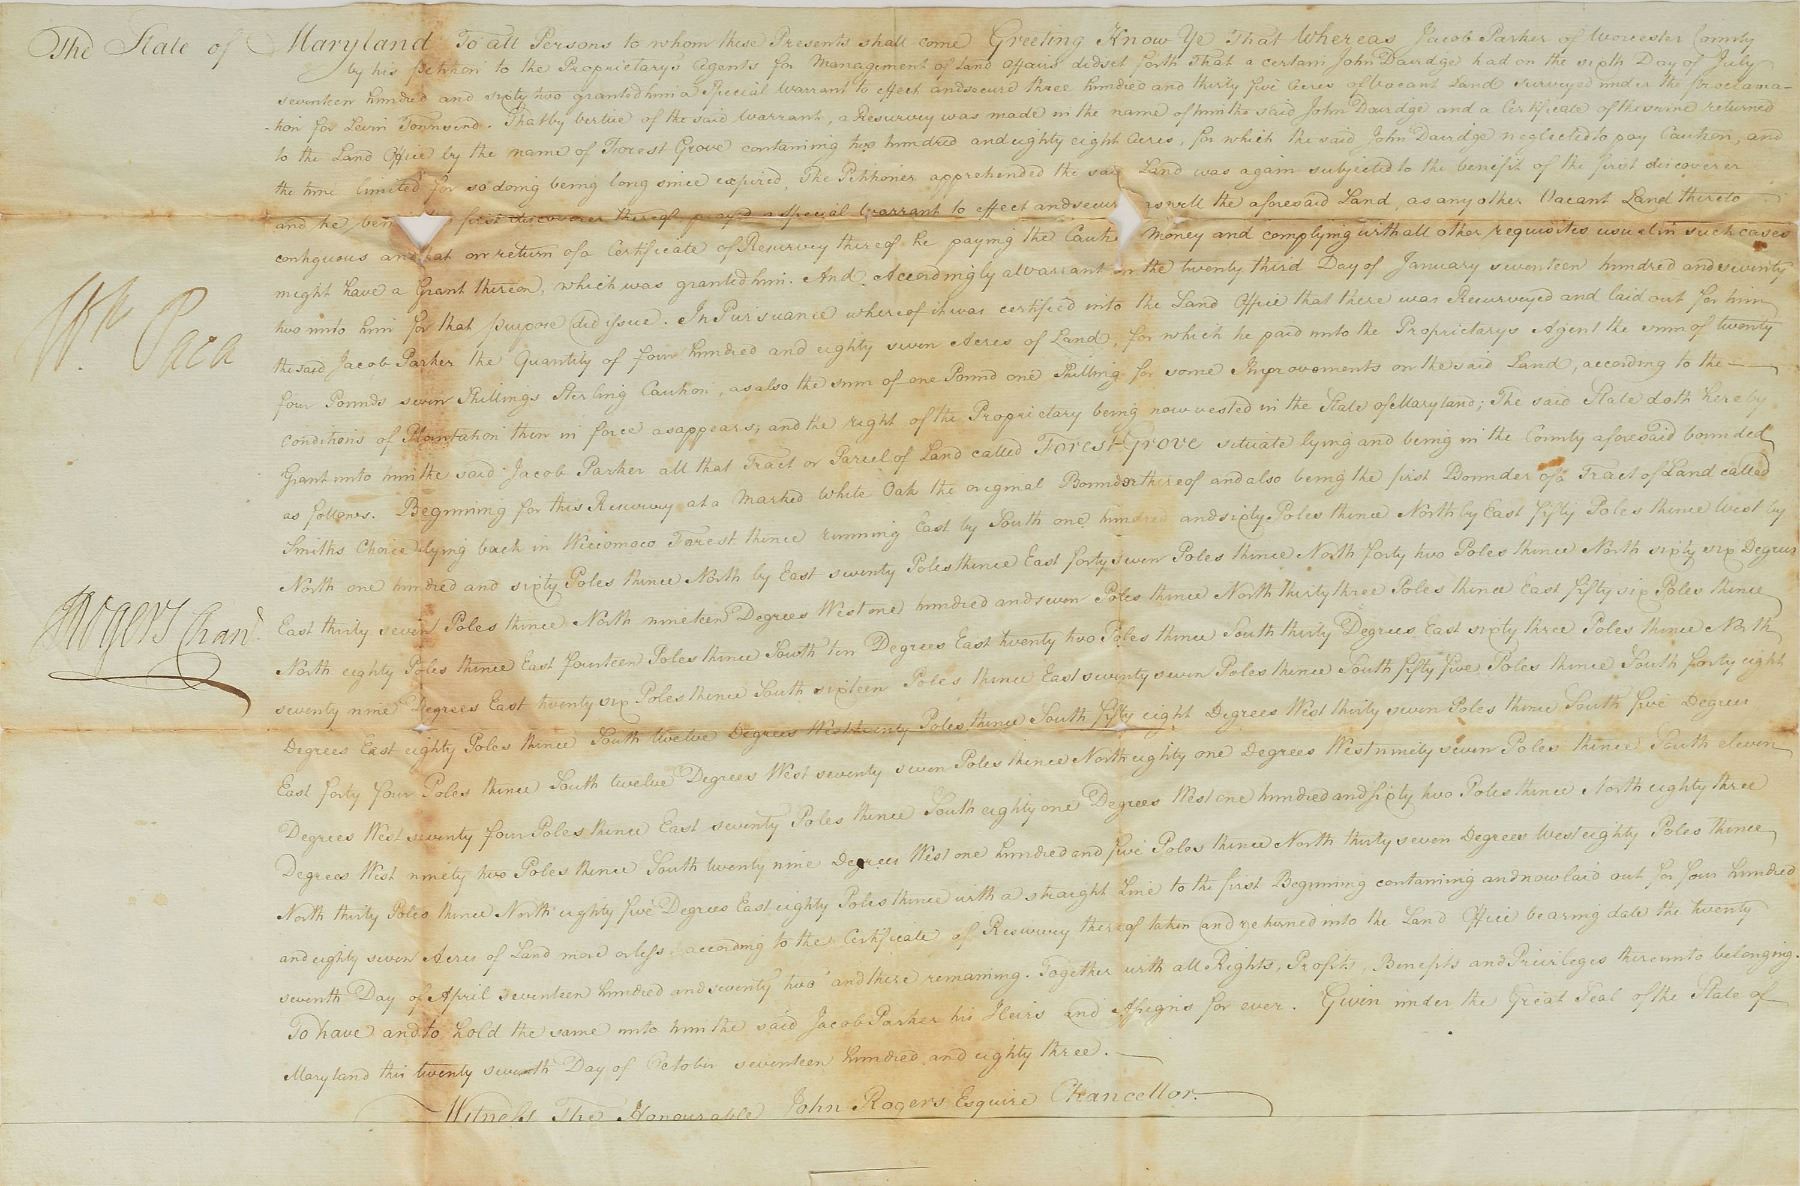 The State of Maryland To all Persons to whom these Presents shall come Greeting Know Ye That Whereas Jacob Parker of Worcester County
by his Petition to the Proprietarys Agents for Management of Land Affairs did set forth That a certain John Davidge had on the sixth Day of July
seventeen hundred and sixty two granted him a Special Warrant to effect and secure three hundred and thirty five Acres of Vacant Land surveyed under the Proclama-
-tion for Levin Townsend. That by vertue of the said Warrant, a Resurvey was made in the name of him the said John Davidge and a Certificate of the same returned
to the Land Office by the name of Forest Grove containing two hundred and eighty eight Acres, for which the said John Davidge neglected to pay Caution, and
the time limited for so doing being long since expired, The Petitioner apprehended the said Land was again subjected to the benefit of the first discoverer
and he first discoverer thereof prayed a Special Warrant to effect and secure as well the aforesaid Land, as any other Vacant Land thereto
contiguous and that on return of a Certificate of Resurvey thereof he paying the Caution Money and complying with all other requisites usual in such cases
might have a Grant thereon, which was granted him. And Accordingly a Warrant on the twenty third Day of January seventeen hundred and seventy
two unto him for that purpose did issue. In Pursuance whereof it was certified into the Land Office that there was Resurveyed and laid out for him
the said Jacob Parker the Quantity of four hundred and eighty seven Acres of Land, for which he paid unto the Proprietarys Agent the sum of twenty
four Pounds seven Shillings Sterling Caution, as also the sum of one Pound one Shilling for some Improvements on the said Land, according to the
Conditions of Plantation then in force as appears; and the right of the Proprietary being now vested in the State of Maryland; The said State doth hereby
Grant unto him the said Jacob Parker all that Tract or Parcel of Land called Forest Grove situate lying and being in the County aforesaid bounded
as follows. Beginning for this Resurvey at a Marked White Oak the original Bounder thereof and also being the first Bounder of a Tract of Land called
Smiths Choice lying back in Wicomoco Forest thence running East by South one hundred and sixty Poles thence North by East fifty Poles thence West by
North one hundred and sixty Poles thence North by East seventy Poles thence East forty seven Poles thence North forty two Poles thence North sixty six Degrees
East thirty seven Poles thence North nineteen Degrees West one hundred and seven Poles thence North thirty three Poles thence East fifty six Poles thence
North eighty Poles thence East fourteen Poles thence South ten Degrees East twenty two Poles thence South thirty Degrees East sixty three Poles thence North
seventy nine Degrees East twenty six Poles thence South sixteen Poles thence East seventy seven Poles thence South fifty five Poles thence South forty eight
Degrees East eighty Poles thence South twelve Degrees West twenty Poles thence South fifty eight Degrees West thirty seven Poles thence South five Degrees
East forty four Poles thence South twelve Degrees West seventy seven Poles thence North eighty one Degrees West ninety seven Poles thence South eleven
Degrees West seventy four Poles thence East seventy Poles thence South eighty one Degrees West one hundred and sixty two Poles thence North eighty three
Degrees West ninety two Poles thence South twenty nine Degrees West one hundred and five Poles thence North thirty seven Degrees West eighty Poles thence
North thirty Poles thence North eighty five Degrees East eighty Poles thence with a straight Line to the first Beginning containing and now laid out for four hundred
and eighty seven Acres of Land more or less, according to the Certificate of Resurvey thereof taken and returned into the Land Office bearing date the twenty
seventh Day of April seventeen hundred and seventy two and there remaining. Together with all Rights, Profits, Benefits and Privileges thereunto belonging.
To have and to hold the same unto him the said Jacob Parker his Heirs and Assigns for ever. Given under the Great Seal of the State of
Maryland this twenty seventh Day of October seventeen hundred and eighty three.
Witness The Honourable John Rogers Esquire Chancellor.
Wm. Paca
J Rogers Chanr.